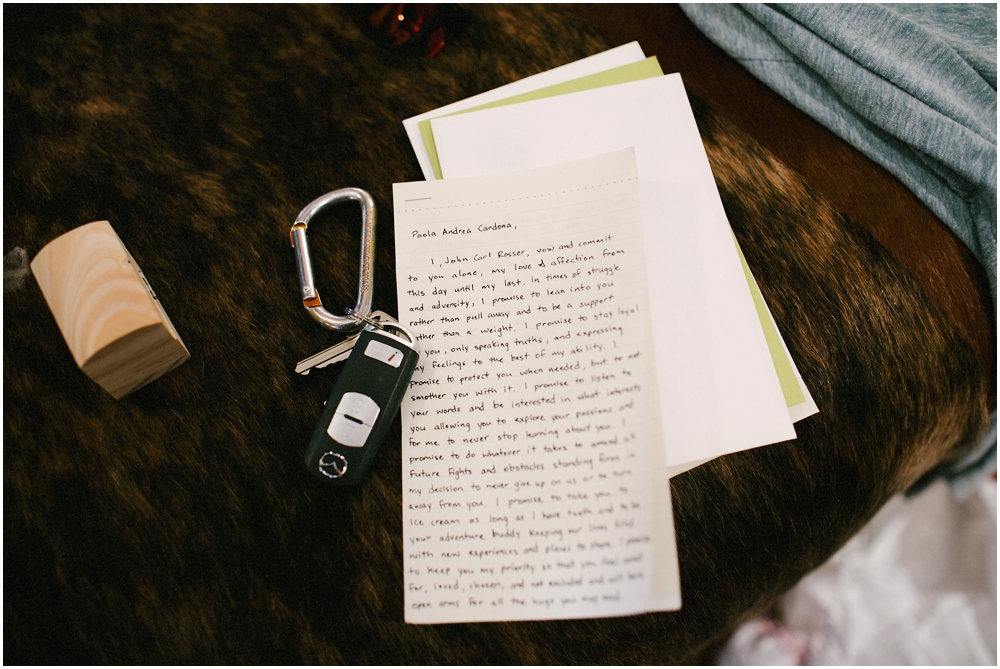 Paola Andrea Cardona,
I, John Carl Rosser, vow and commit
to you alone, my love & affection from
this day until my last. In times of struggle
and adversity, I promise to lean into you
rather than pull away and to be a support
rather than a weight. I promise to stay loyal
you, only speaking truths, and expressing
my feelings to the best of my ability. I
promise to protect you when needed, but to not
smother you with it. I promise to listen to
your words and be interested in what interests
you allowing you to explore your passions and
for me to never stop learning about you. I
promise to do whatever it takes to amend all
future fights and obstacles standing firm in
my decision to never give up on us or to turn
away from you. I promise to take you to
ice cream as long as I have teeth and to be
your adventure buddy keeping our lives
with new experiences and places to share. I promise
to keep you my priority so that you feel
for, loved, chosen, and not excluded and will have
open arms for all the hugs you may need.